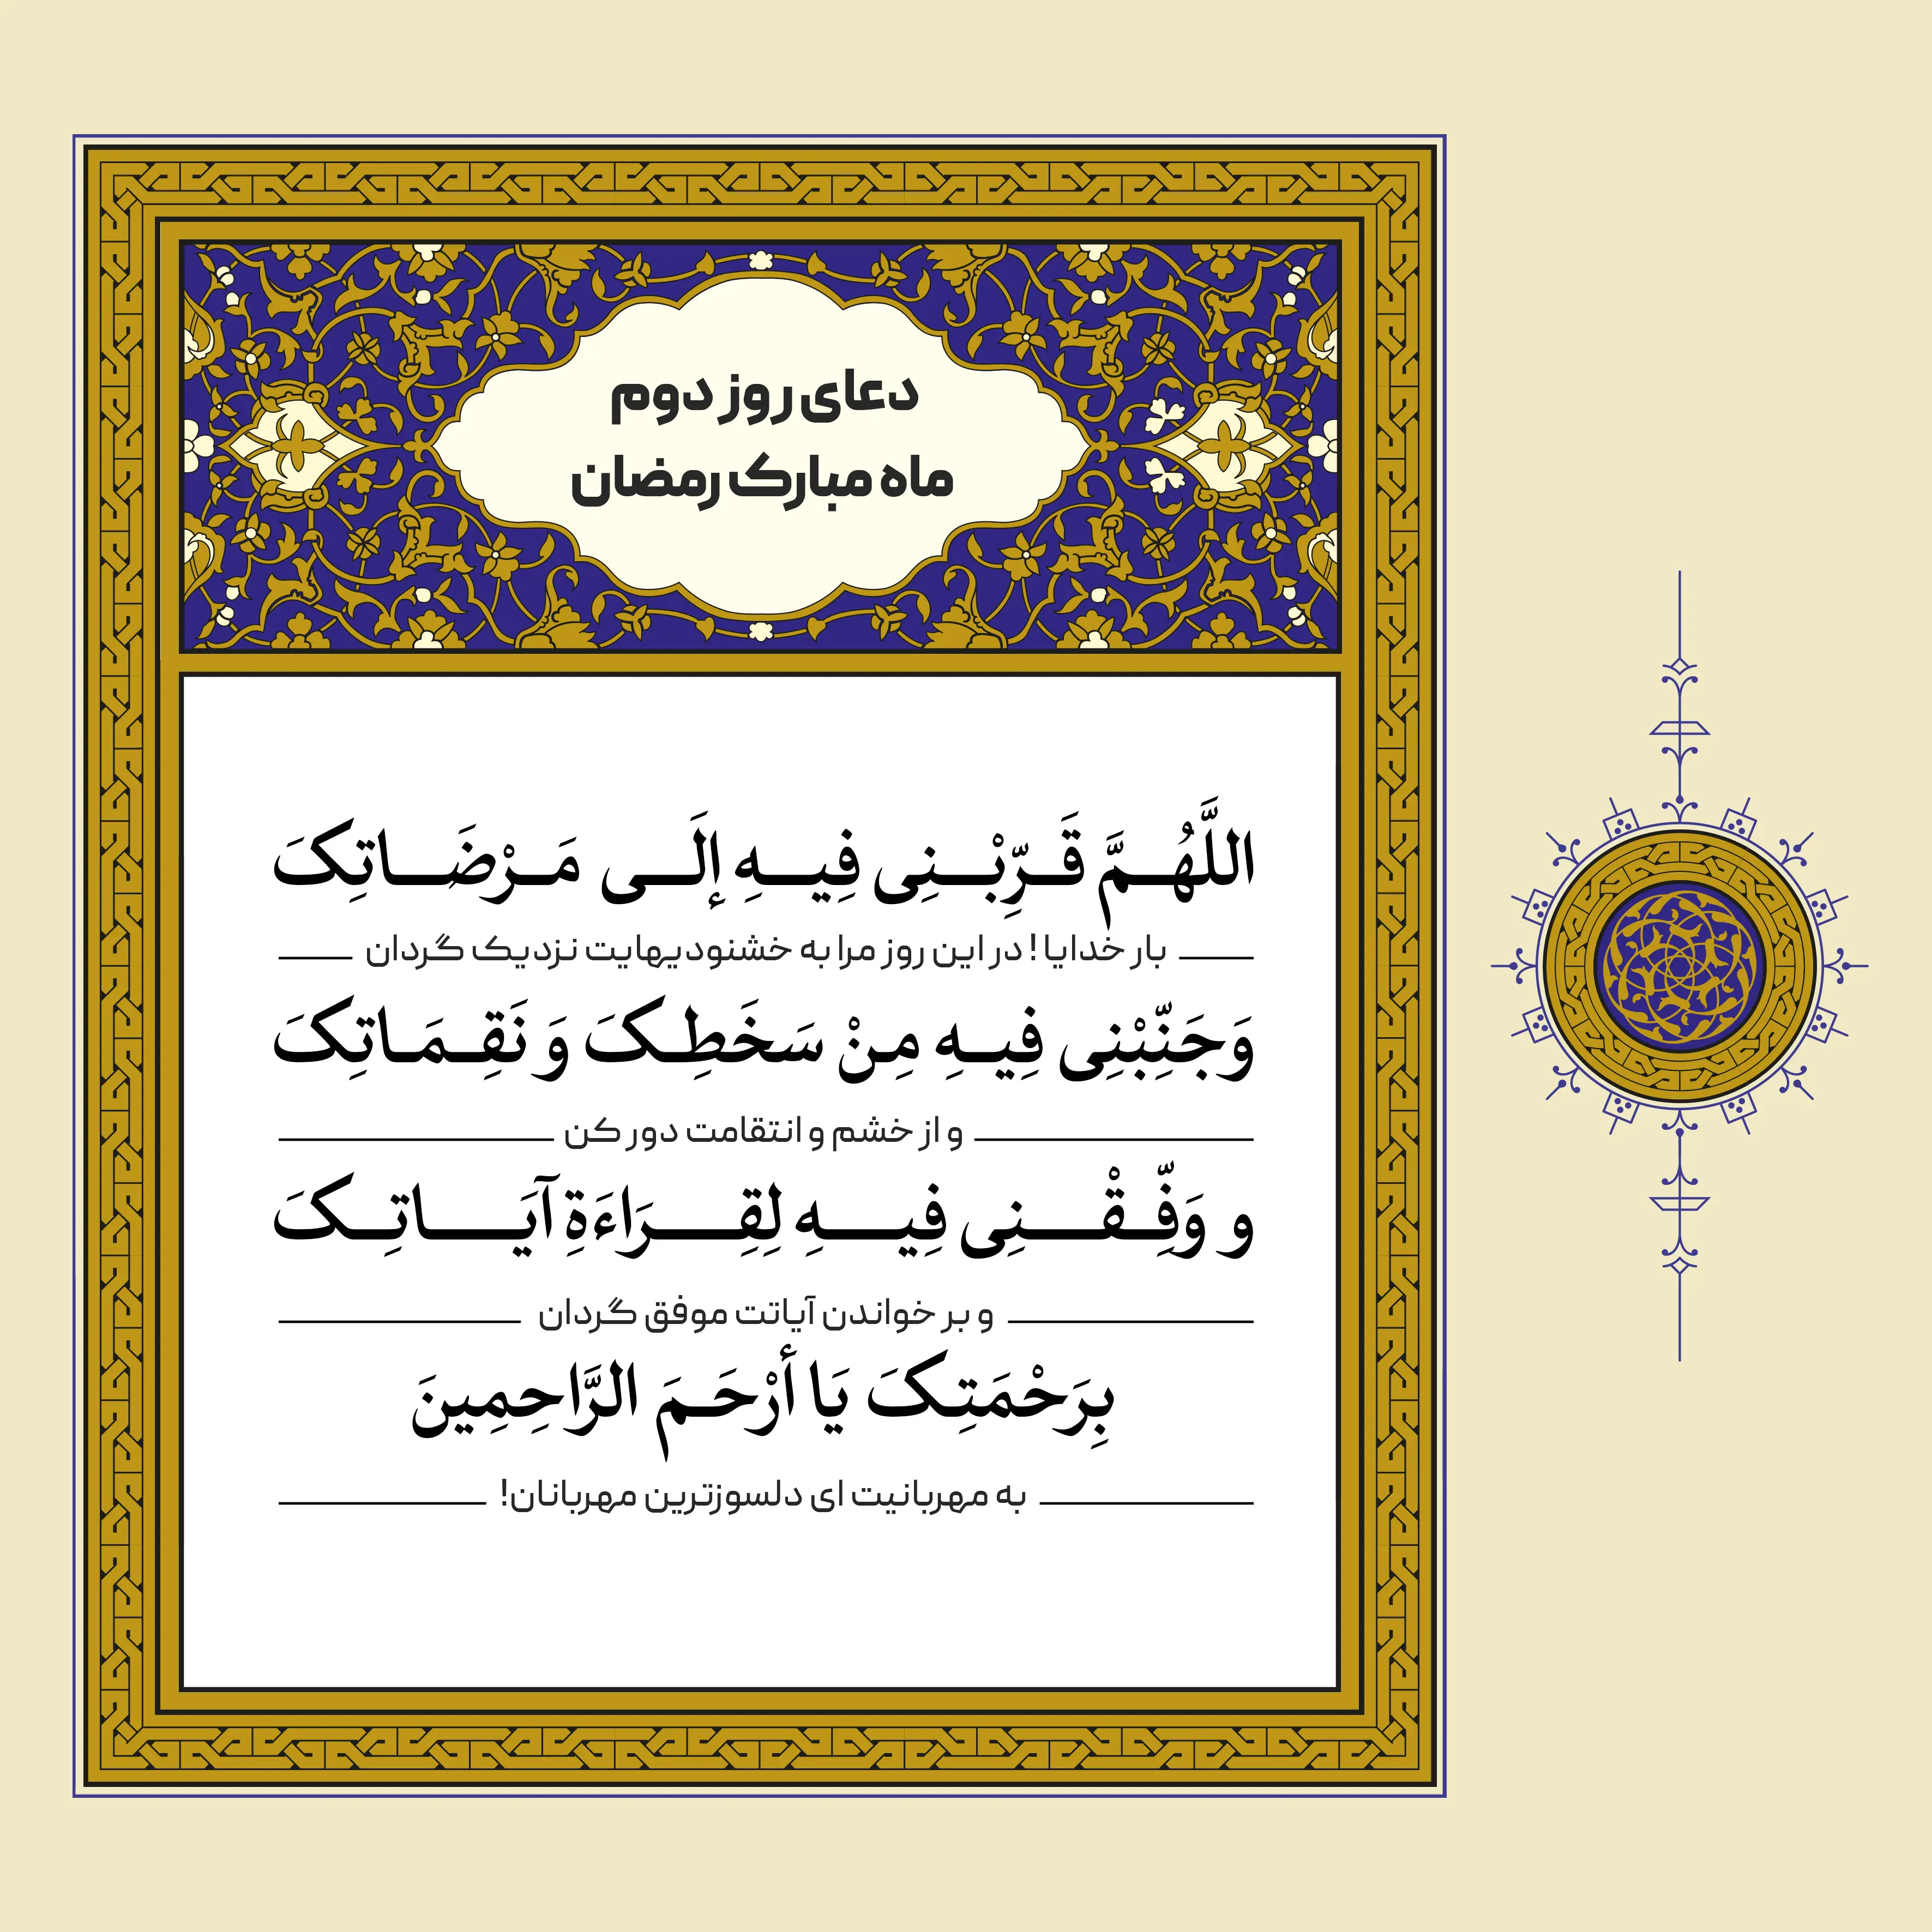 دعای روز دوم
ماه مبارک رمضان
اللَّهُمَّ قَرِّبْنِی فِیهِ إِلَی مَرْضَاتِکَ
بار خدایا! در این روز مرا به خشنودیهایت نزدیک گردان
وَجَنِّبْنِی فِیهِ مِنْ سَخَطِکَ وَ نَقِمَاتِکَ
و از خشم و انتقامت دور کن
و وَفِّقْنِی فِیهِ لِقِرَاءَةِ آیَاتِکَ
و بر خواندن آیاتت موفق گردان
بِرَحْمَتِکَ یَا أَرْحَمَ الرَّاحِمِینَ
به مهربانیت ای دلسوزترین مهربانان!